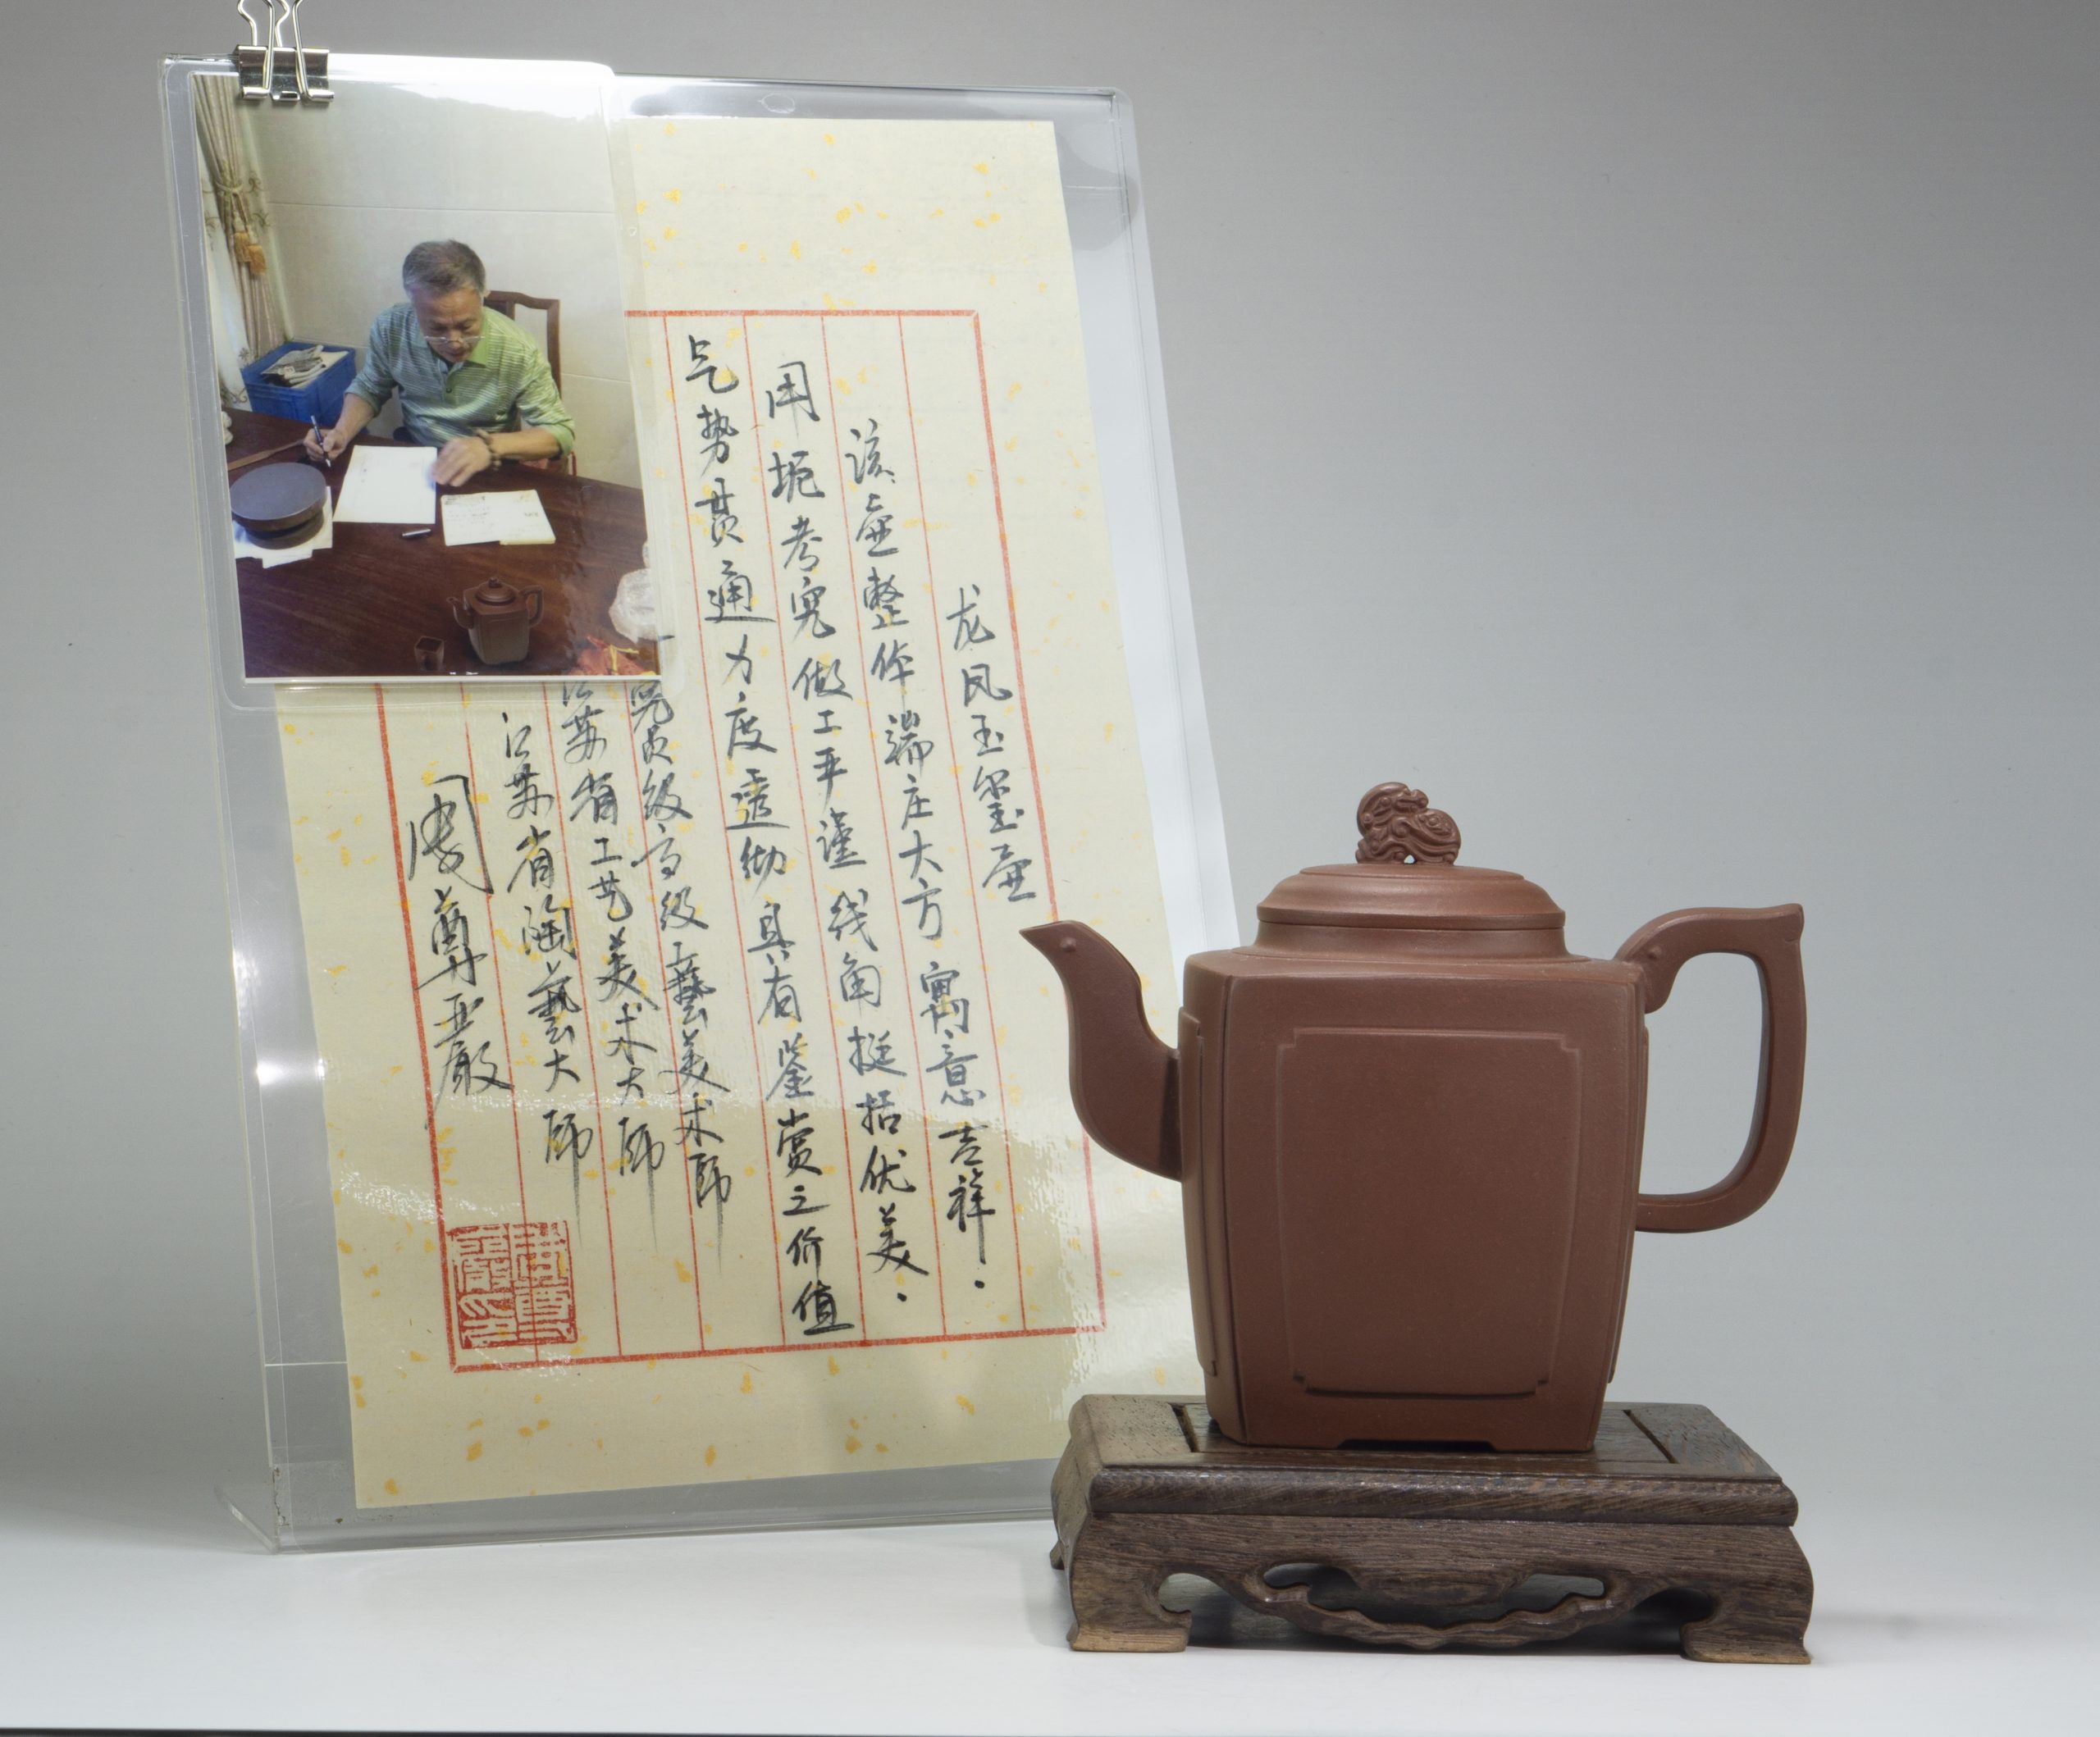 龙凤玉玺壶
该壶整体端庄大方寓意吉祥.
用坭考究做工严谨线角挺括优美.
气势贯通力度透彻具有鉴赏之价值
究员级高级工藝美术师
江苏省工艺美术大师
江苏省陶藝大师
周尊嚴
周尊嚴印